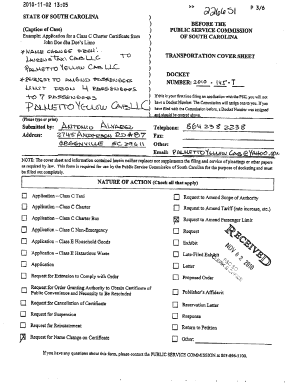 2010-11-02 13:05
>> 226251 P 3/6
STATE OF SOUTH CAROLINA
(Caption of Case)
Example: Application for a Class C Charter Certificate from
John Doe dba Doe's Limo
* NAME CHANGE FROM:
TAXI LLC TO
PALMETTO YELLOW CAB LLC
* REQUEST TO AMEND PASSENGER
LIMIT FROM 4 PASSENGERS
TO 7 PASSENGERS
PALMETTO YELLOW CAB LLC
BEFORE THE
PUBLIC SERVICE COMMISSION
OF SOUTH CAROLINA
TRANSPORTATION COVER SHEET
DOCKET
NUMBER: 2010 - 145 - T
If this is your first time filing an application with the PSC, you will not
have a Docket Number. The Commission will assign one to you. If you
have filed with the Commission before, a Docket Number was assigned
and should be entered above.
(Please type or print)
Submitted by: ANTONIO ALVAREZ
Address: 2745 ANDERSON RD #87
GREENVILLE SC 29611
Telephone: 864 238 2238
Fax:
Other:
Email: PALMETTOYELLOWCAB@YAHOO.
NOTE: The cover sheet and information contained herein neither replaces nor supplements the filing and service of pleadings or other papers
as required by law. This form is required for use by the Public Service Commission of South Carolina for the purpose of docketing and must
be filled out completely.
NATURE OF ACTION (Check all that apply)
Application - Class C Taxi
Application - Class C Charter
Application - Class C Charter Bus
Application - Class C Non-Emergency
Application - Class E Household Goods
Application - Class E Hazardous Waste
Application
Request for Extension to Comply with Order
Request for Order Granting Authority to Obtain Certificate of
Public Convenience and Necessity to Be Rescinded
Request for Cancellation of Certificate
Request for Suspension
Request for Reinstatement
X Request for Name Change on Certificate
Request to Amend Scope of Authority
Request to Amend Tariff (rate increase, etc.)
X Request to Amend Passenger Limit
Request
Exhibit
Late-Filed Exhibit
Letter
Proposed Order
Publisher's Affidavit
Reservation Letter
Response
Return to Petition
Other:
RECEIVED
NOV 02 2010
If you have any questions about this form, please contact the PUBLIC SERVICE COMMISSION at 803-896-5100.